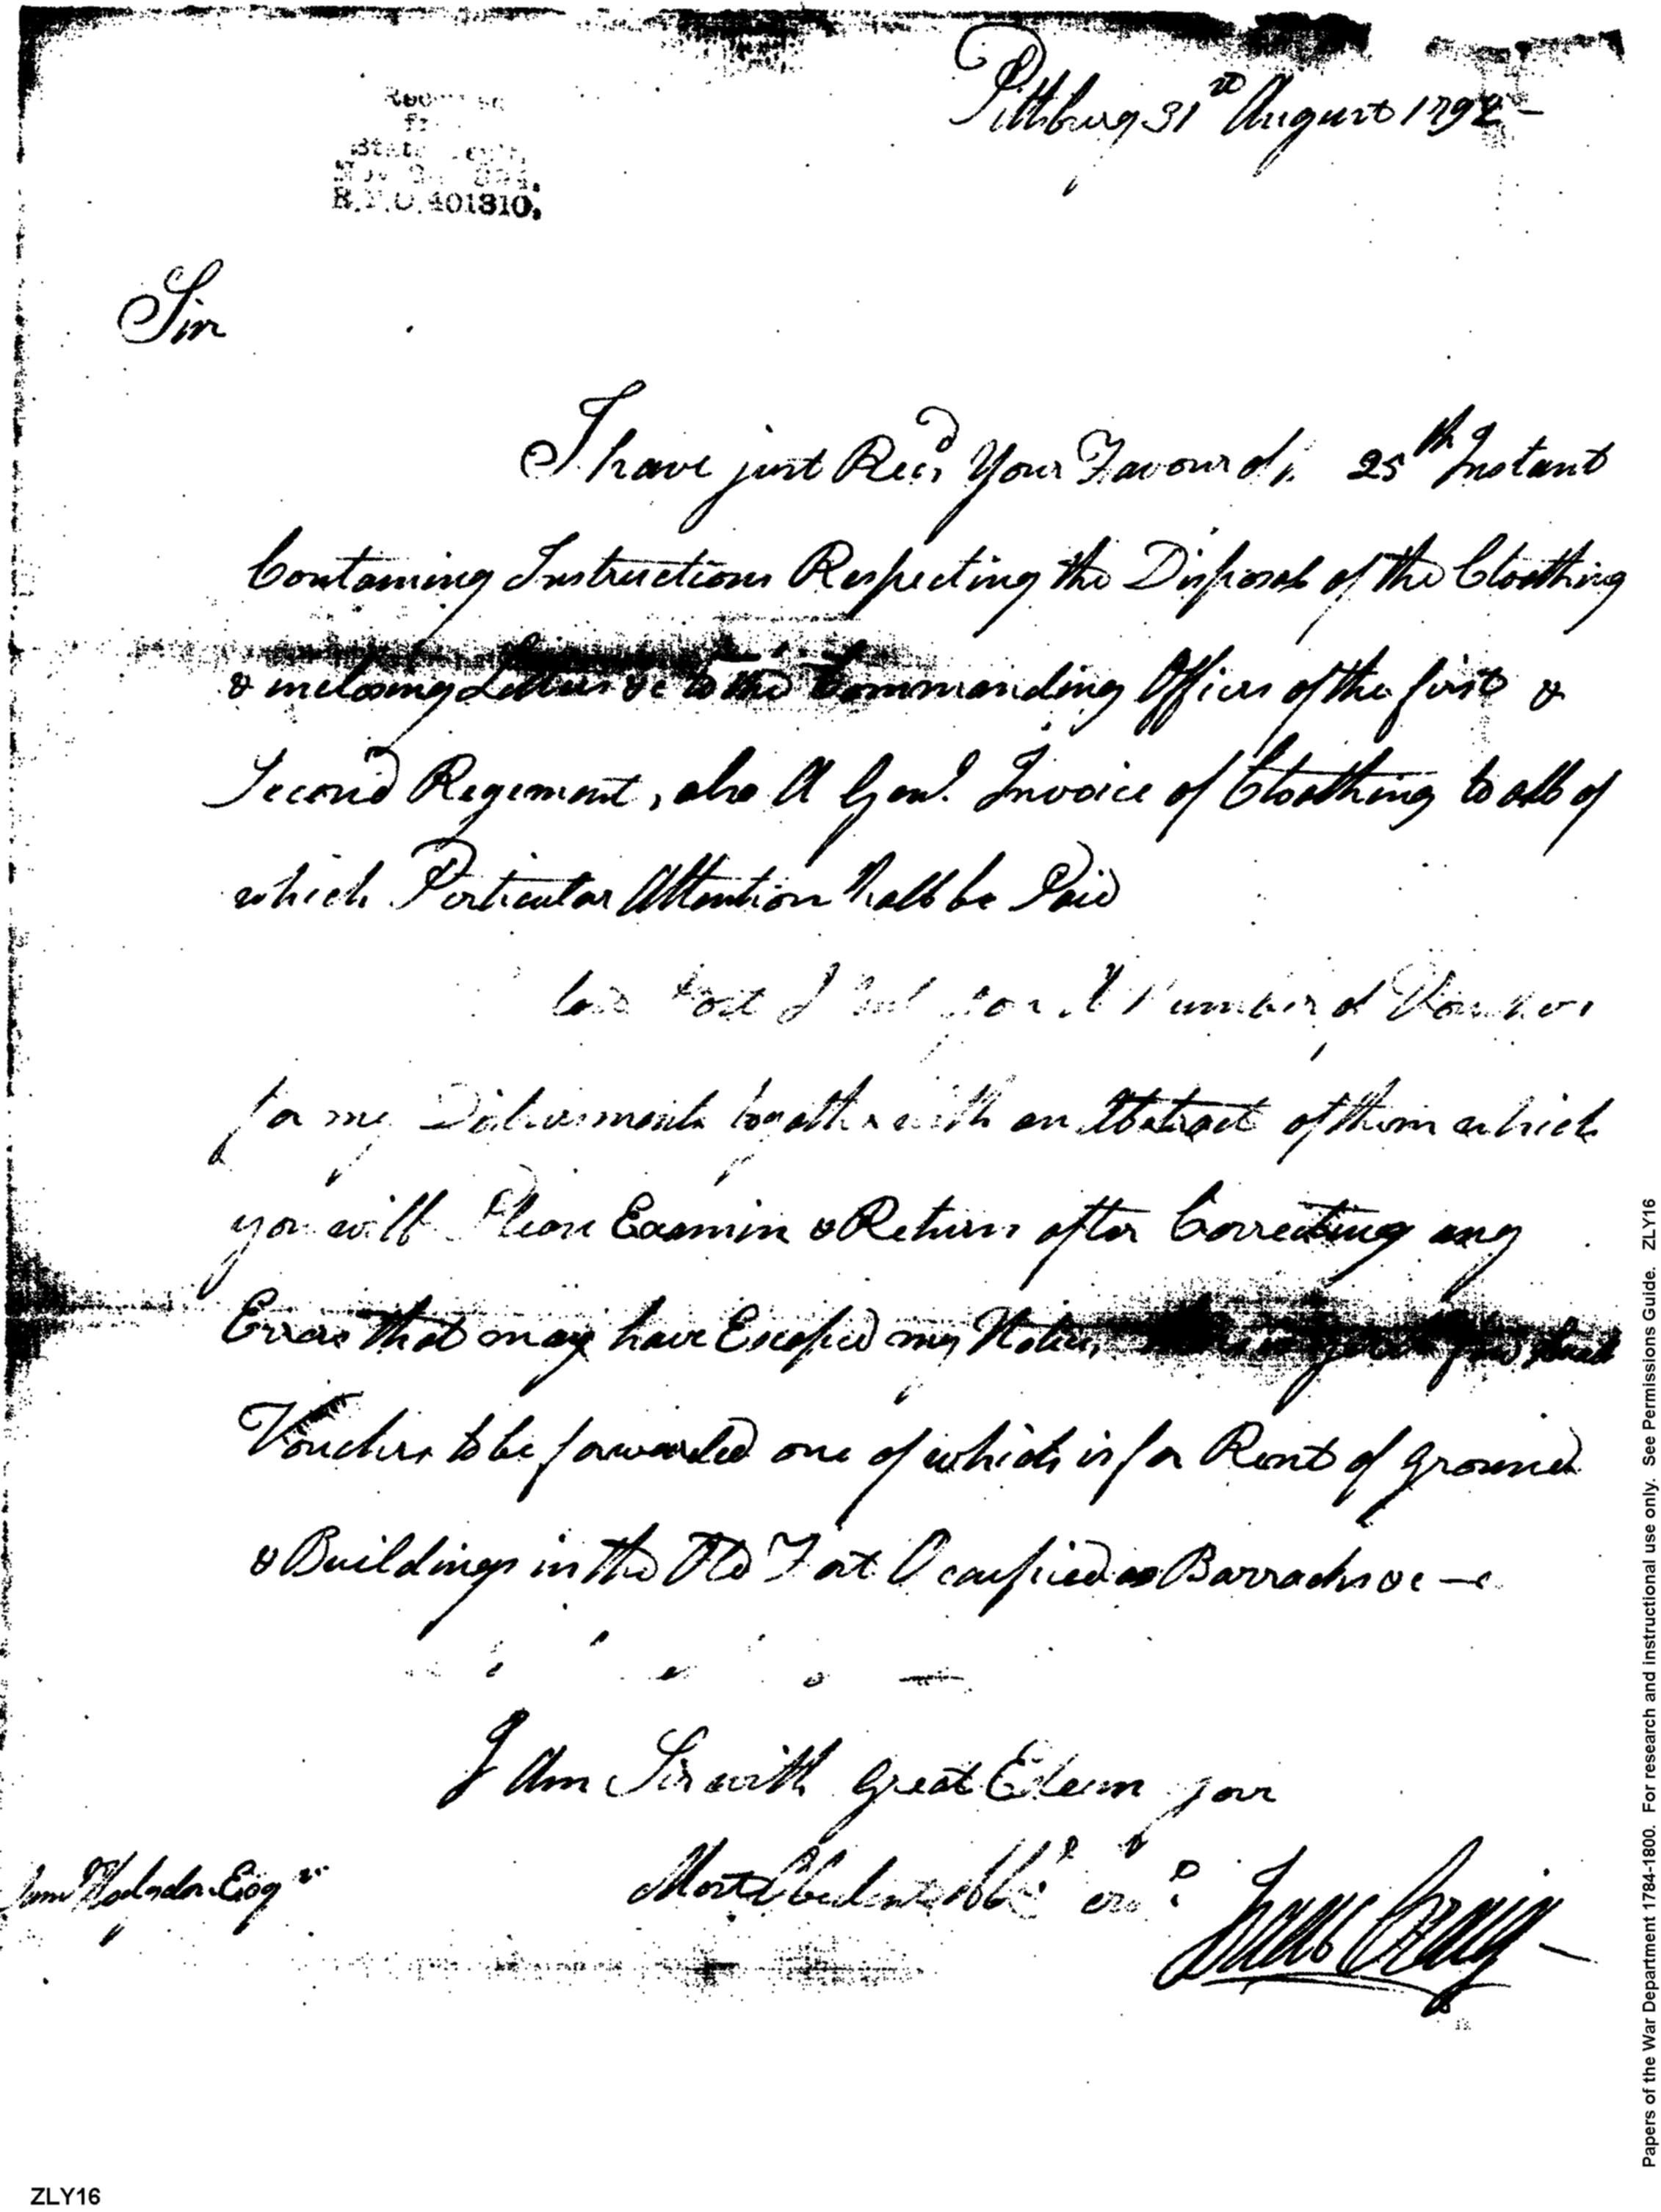 Pittsburg 31st August 1792
R.P.O. 401310.
Sir
I have just Recd Your Favour of 25th Instant
Containing Instructions Respecting the Disposal of the Cloathing
& inclosing Letters &c to the Commanding Officers of the first &
Second Regement, also A Genl. Invoice of Cloathing to all of
which Perticular Attention shall be Paid
last Post I for A Number of Vouchers
for my Disbursments together with an Abstract of them which
you will Pleas Examin & Return after Correcting any
Errors that may have Escaped my Notice,
Vouchers to be forwarded one of which is for Rent of ground
& Buildings in the Old Fort Occupied as Barracks &c
I Am Sir with great Esteem your
Most Obedient Hble
Saml Hodgdon Esqr
Isaac Craig
Papers of the War Department 1784-1800. For research and instructional use only. See Permissions Guide. ZLY16
ZLY16